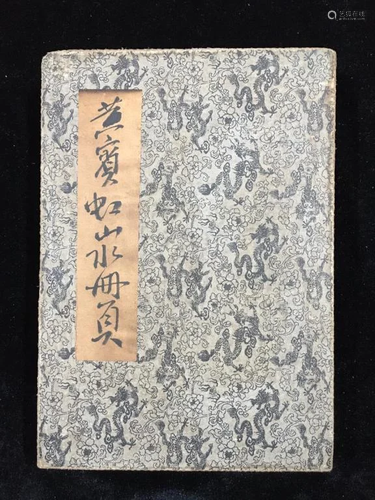 黄賓虹山水冊頁
艺搜在线